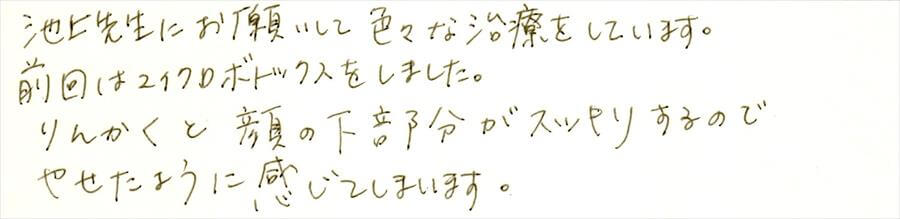 池上先生にお願いして色々な治療をしています。
前回はマイクロボトックスをしました。
りんかくと顔の下部分がスッキリするので
やせたように感じてしまいます。